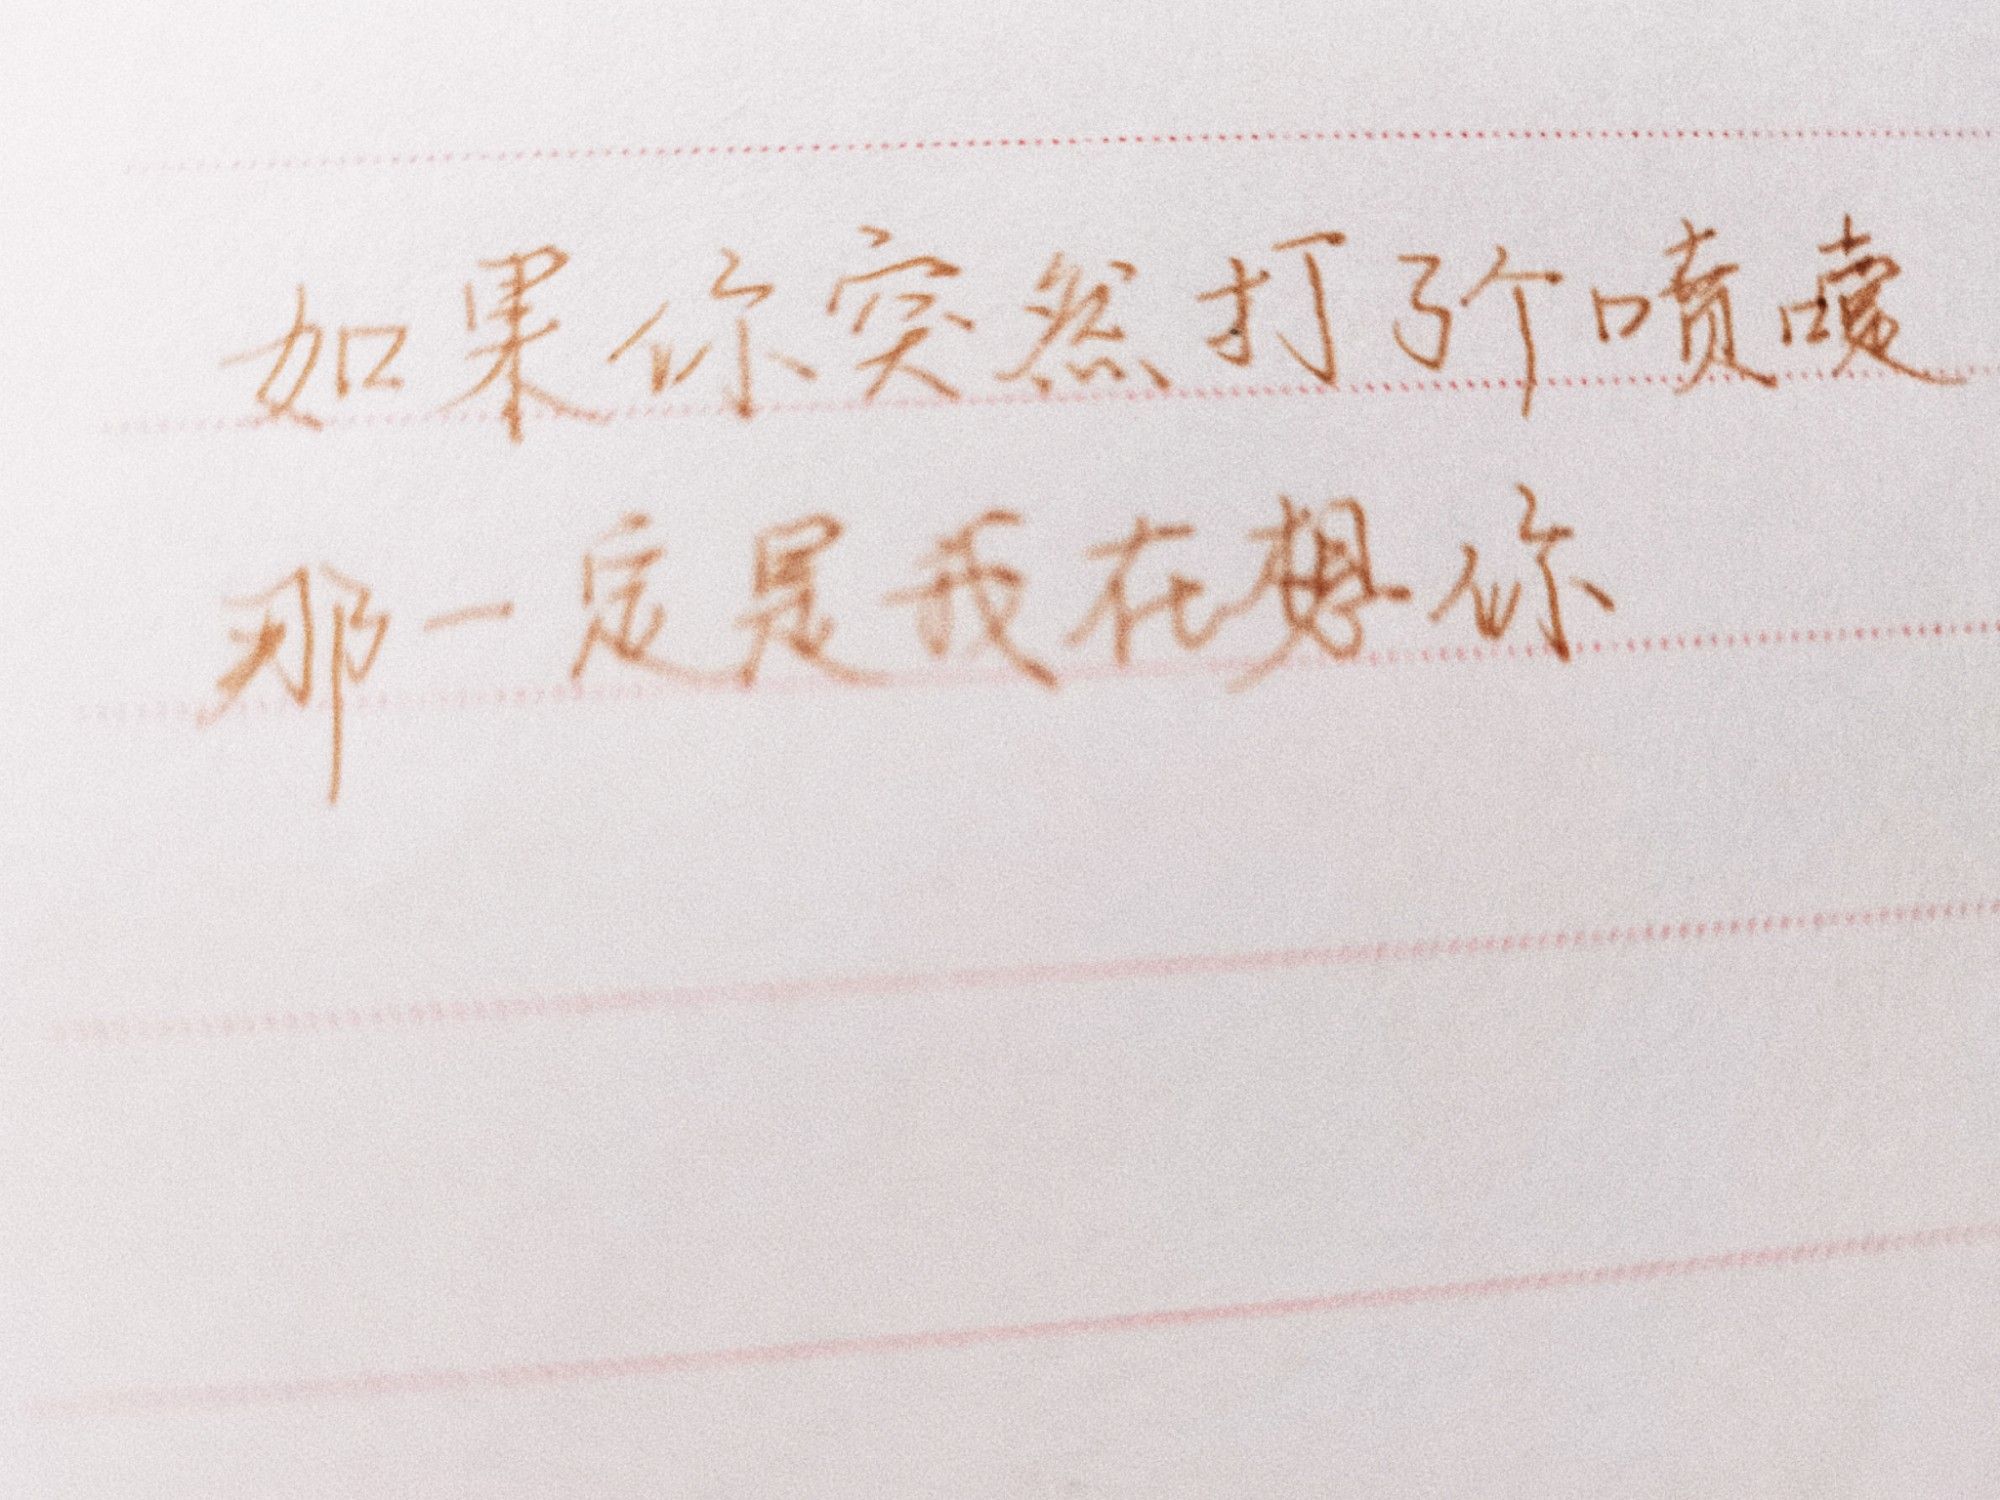 如果你突然打了个喷嚏
那一定是我在想你